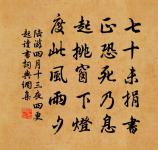 七十未捐書
正恐死乃息
起挑窗下燈
度此風雨夕
陸游四月十三夜四更
起讀書詞典網集